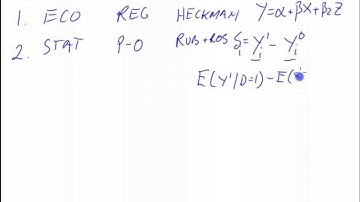 1. ECO REG HECKMAN Y=α+βX+β₂Z
2. STAT P-O RUB+ROS δᵢ=Yᵢ¹-Yᵢ⁰
E(Y¹/D=1)-E(Y